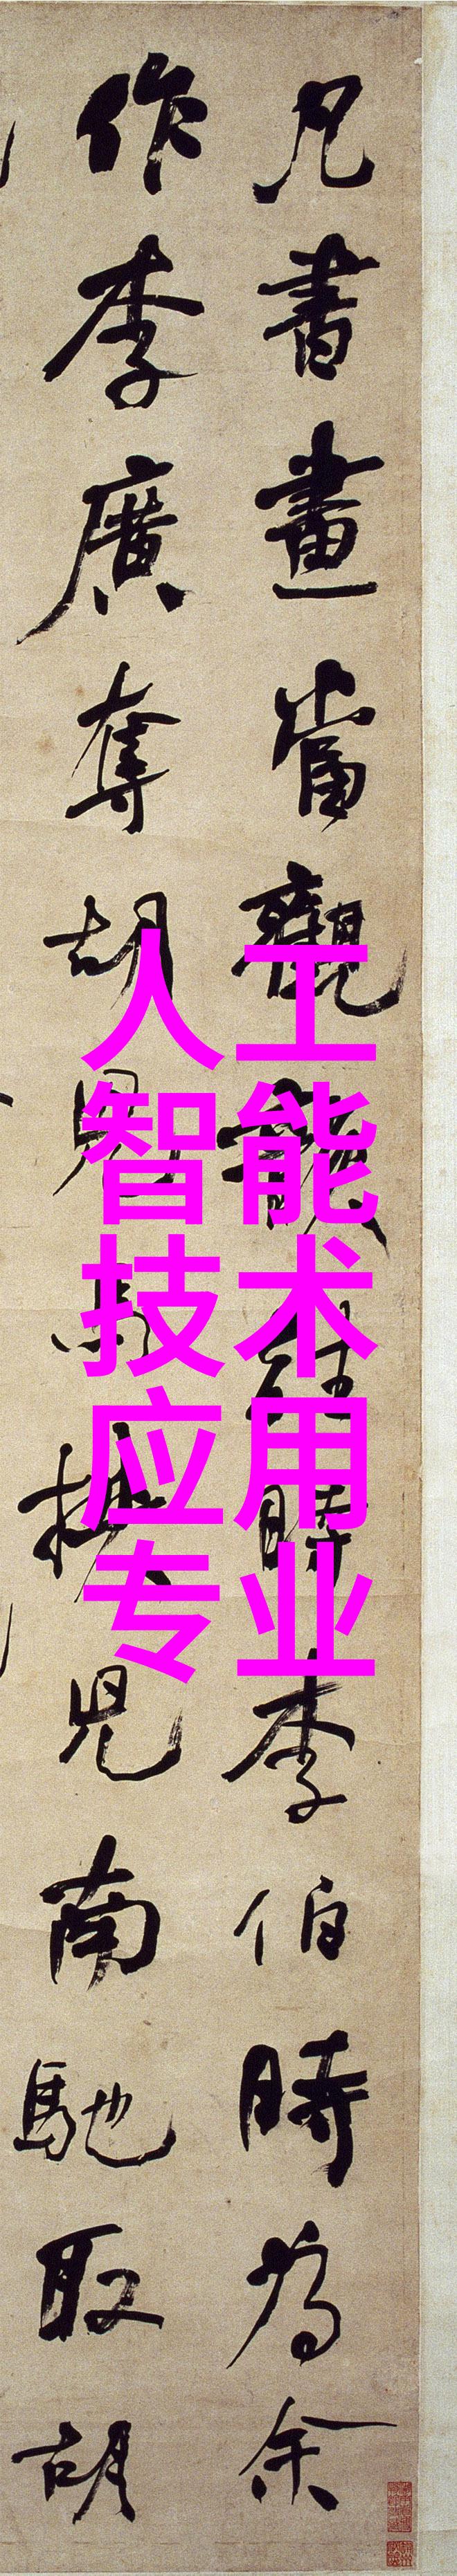 凡書畫當觀韻往時李伯時為余
作李廣奪胡兒馬挾兒南馳取胡
人工
智能
技术
应用
专业